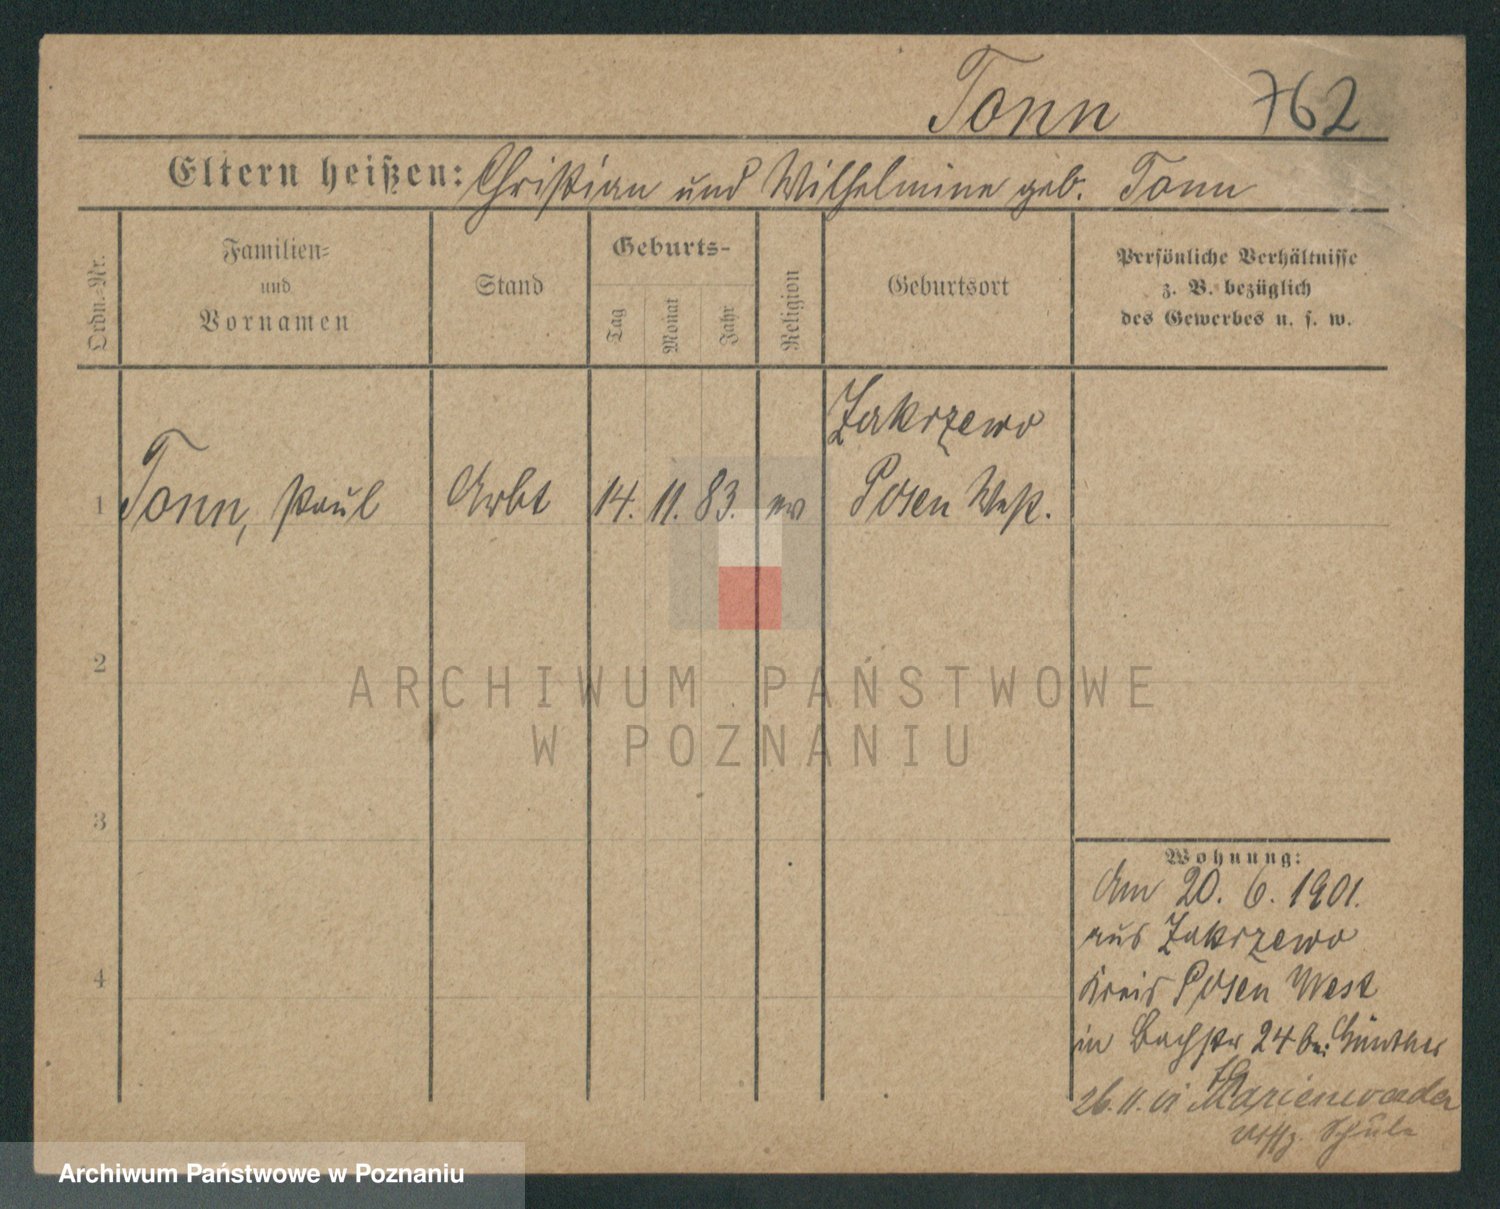 Tonn 762
Eltern heißen: Christian und Wilhelmine geb. Tonn
Ordn.-Nr.
Familien-
und
Vornamen
Stand
Geburts-
Tag
Monat
Jahr
Religion
Geburtsort
Persönliche Verhältnisse
z. B. bezüglich
des Gewerbes u. s. w.
Zakrzewo
1 Tonn, Paul Arbt 14. 11. 83. ev Posen West.
2
ARCHIWUM PAŃSTWOWE
W POZNANIU
3
Wohnung:
Am 20. 6. 1901.
aus Zakrzewo
4
Kreis Posen West
in Bachstr 24 bei Günther
26. 11. 01 Marienwerder
Schule
Archiwum Państwowe w Poznaniu